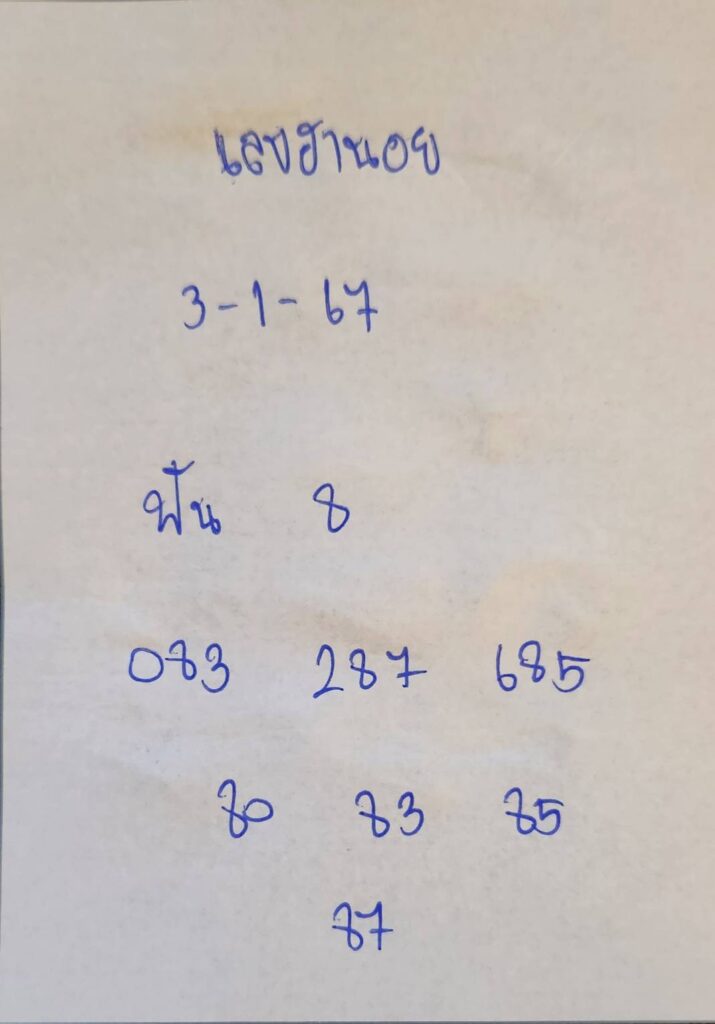 เลขฮานอย
3-1-67
ฟัน 8
083 287 685
80 83 85
87